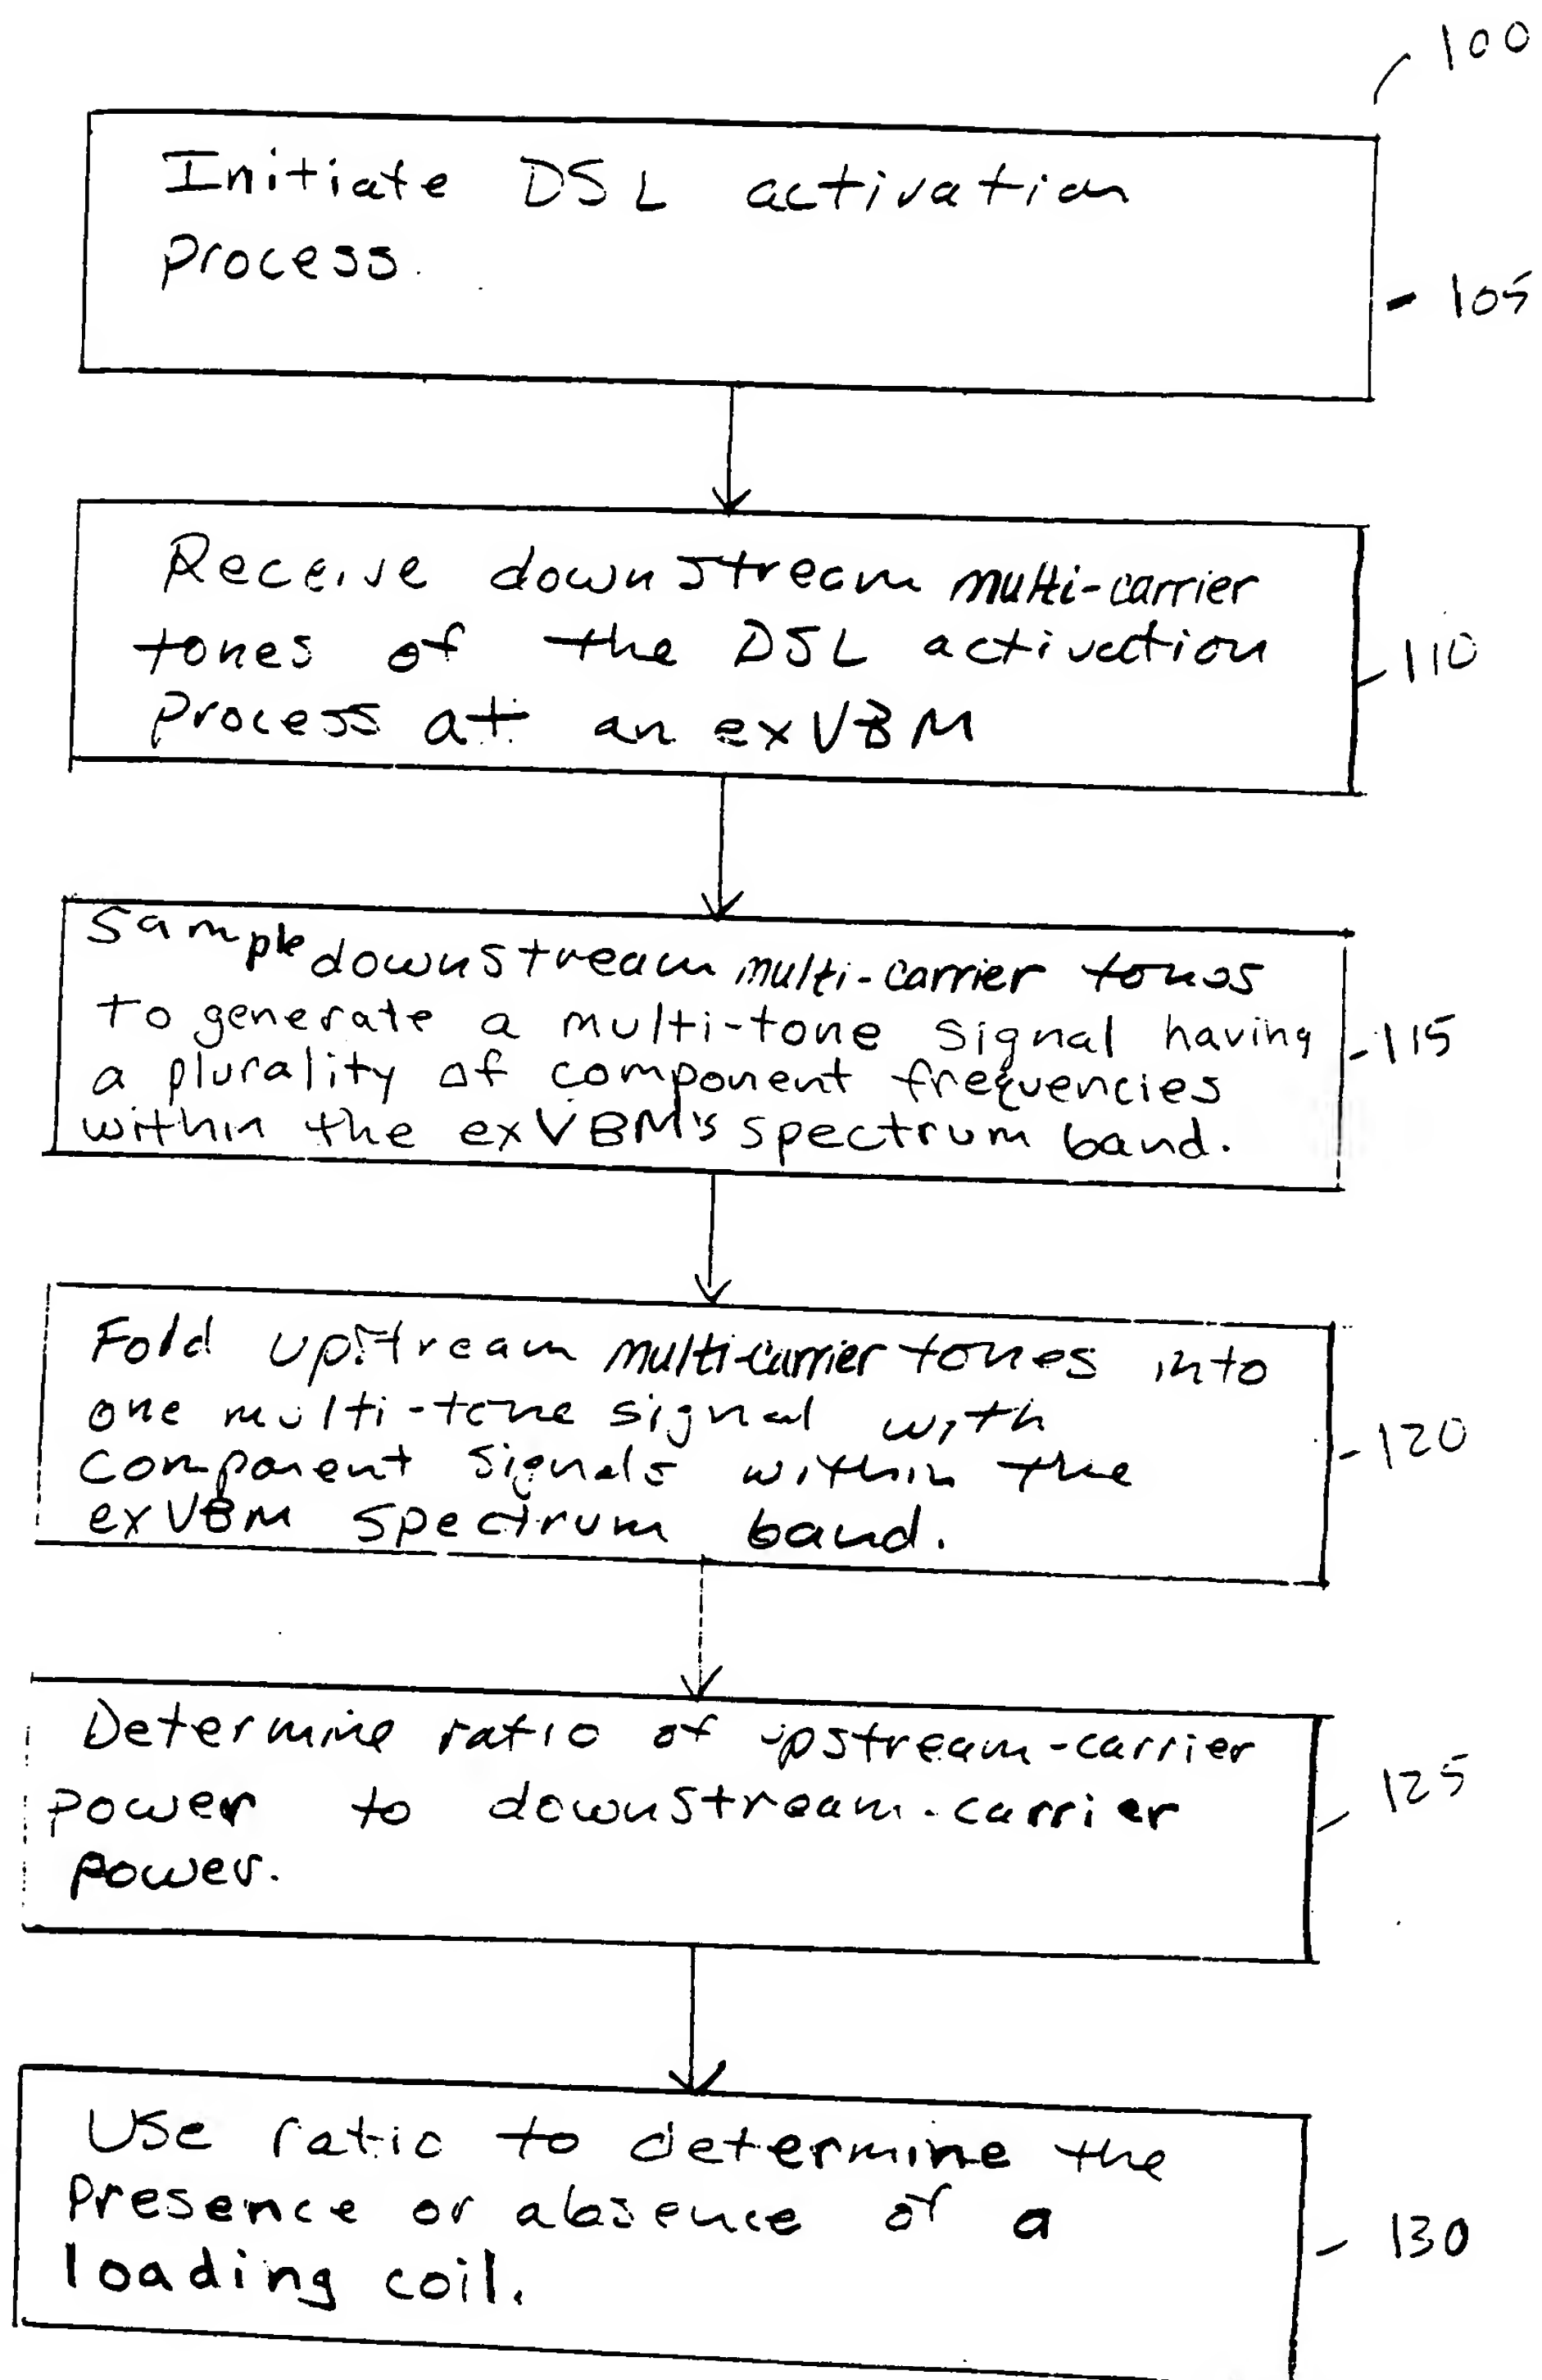 100
Initiate DSL activation
process.
105
Receive downstream multi-carrier
tones of the DSL activation
process at an exVBM
110
Sample downstream multi-carrier tones
to generate a multi-tone signal having
a plurality of component frequencies
within the exVBM's spectrum band.
115
Fold upstream multi-carrier tones into
one multi-tone signal with
component signals within the
exVBM spectrum band.
120
Determine ratio of upstream-carrier
power to downstream-carrier
power.
125
Use ratio to determine the
presence or absence of a
loading coil.
130